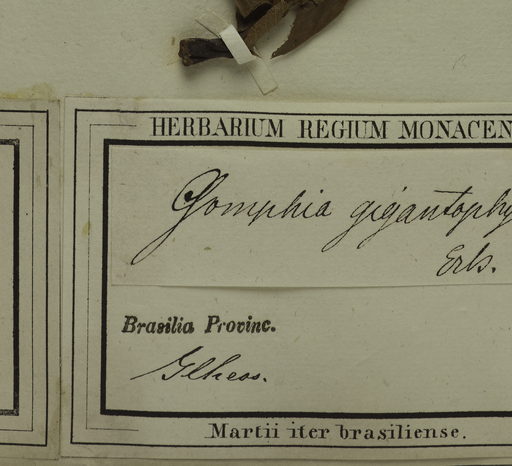 HERBARIUM REGIUM MONACEN
Gomphia gigantophy
Erb.
Brasilia Provinc.
Ilheos.
Martii iter brasiliense.